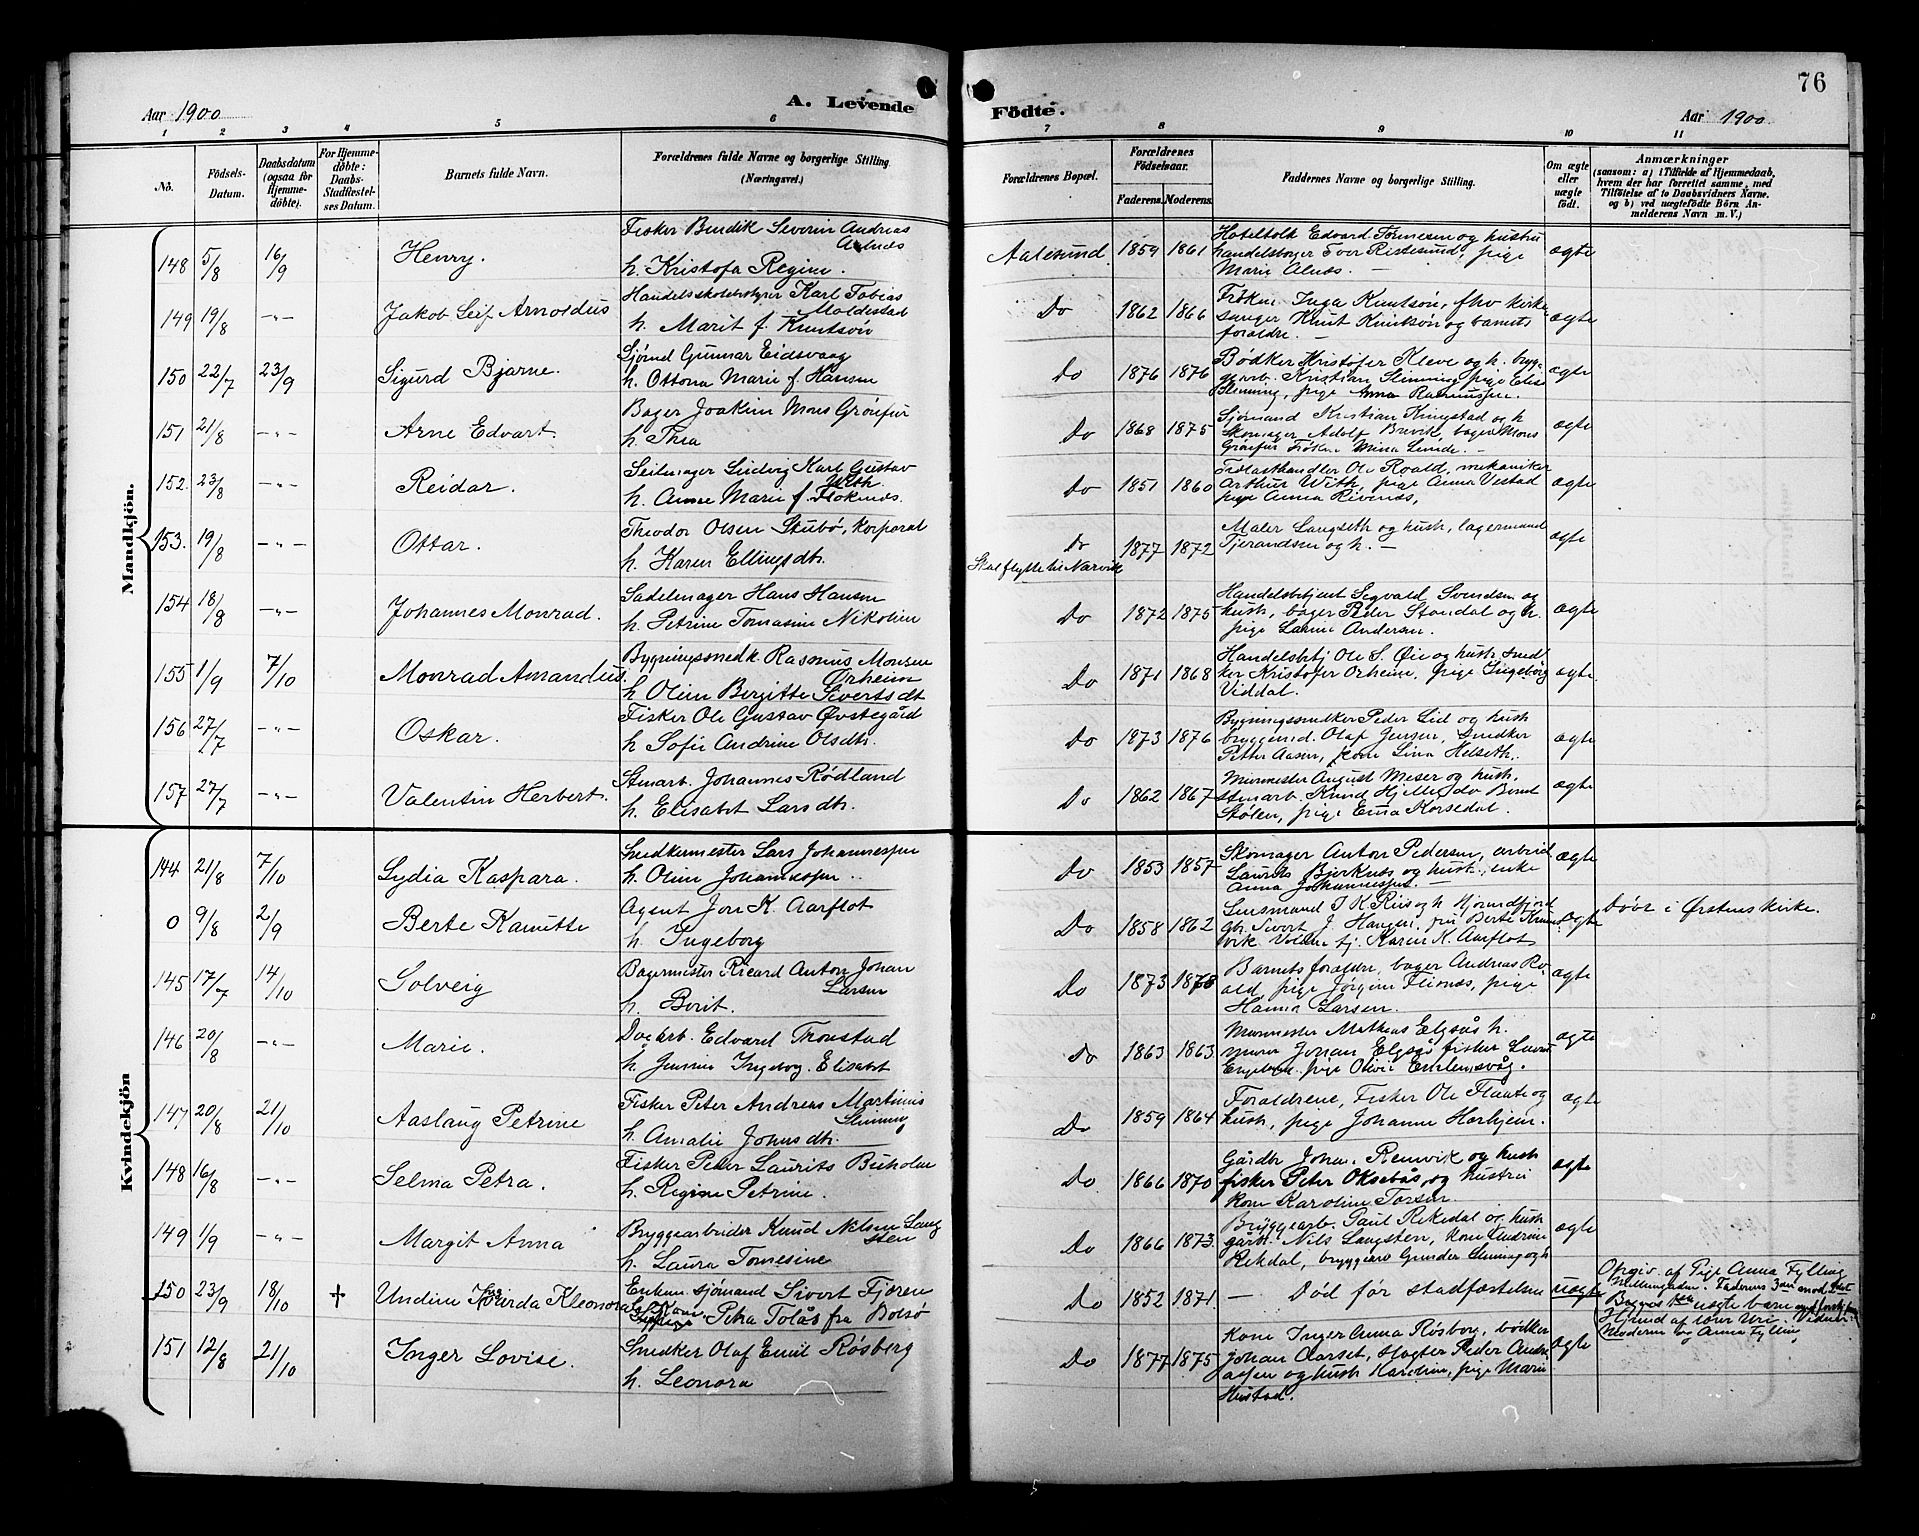 76
Aar 1900
A. Levende
Födte.
Aar 1900
1 2 3 4 5 6 7 8 9 10 11
No.
Födsels-Datum.
Daabsdatum (ogsaa for Hjemme-döbte).
For Hjemme-döbte: Daabs-Stadfæstel-ses Datum.
Barnets fulde Navn.
Forældrenes fulde Navne og borgerlige Stilling.
(Næringsvei.)
Forældrenes Bopæl.
Forældrenes Födselsaar.
Faderens. Moderens.
Faddernes Navne og borgerlige Stilling.
Om ægte eller uægte födt.
Anmærkninger
(saasom: a) i Tilfælde af Hjemmedaab,
hvem der har forrettet samme, med
Tilföielse af to Daabsvidners Navne,
og b) ved uægtefödte Börn An-
melderens Navn m. V.)
Mandkjön.
148 5/8 16/9 Henry.
Fisker Bendik Severin Andreas
Alnæs
h. Kristofa Regine.
Aalesund 1859 1861
Hotelfolk Edvard Tønnesen og hustru
handelsborger Tver Ristesund, pige
Marie Alnæs. —
ægte
149 19/8 -"- Jakob Leif Arnoldus
Handelsskolebestyrer Karl Tobias
Moldestad
h. Marit f. Knutson
Do 1862 1866
Frøken Inga Knutson, fhv kirke
sanger Knut Knutson og barnets
foraldre. —
ægte
150 22/7 23/9 Sigurd Bjarne.
Sjømd Gunnar Eidsvaag
h. Ottona Marie f. Hansen
Do 1876 1876
Bødker Kristofer Kleve og h. brygg
arb. Kristian Slinning, pige Elise
Slinning, pige Anna Rasmussen.
ægte
151 21/8 -"- Arne Edvart.
Bager Joakim Mons Grønfur
h. Thea
Do 1868 1875
Sjømand Kristian Ringstad og h
Skomager Adolf Brevik, bager Mons
Frøken Mina Lunde. —
ægte
152. 23/8 -"- Reidar.
Seilmager Ludvig Karl Gustav
With
h. Anne Marie f. Floknæs.
Do 1851 1860
Trælasthandler Ole Roald, mekaniker
Arthur With, pige Anna Vestad
pige Anna Rivenæs,
ægte
153. 19/8 -"- Ottar.
Theodor Olsen Stubø, korporal
h. Karen Ellingsdtr.
Do
Skal flytte til Narvik
1877 1872
Maler Langseth og hust, lagermand
Tjerandsen og h. —
ægte
154 18/8 -"- Johannes Monrad.
Sadelmager Hans Hansen
h. Petrine Tomasine Nikolien
Do 1872 1875
Handelsbetjent Segvald Svendsen og
hust, bager Peder Standal og h.
pige Larine Andersen.
ægte
155 1/9 7/10 Monrad Amandus.
Bygningssnedk. Rasmus Monsen
Ørheim
h. Oline Bergitte Sivertsdt
Do 1871 1868
Handelsbetj Ole S. Øie og hust, sned
ker Kristofer Orheim, pige Ingeborg
Viddal.
ægte
156 27/7 -"- Oskar.
Fisker Ole Gustav Øvstegård
h Sofie Andrine Olsdtr.
Do 1873 1876
Bygningssnedker Peder Lid og hust
Olaf Jensen, Snedker
Petter Aasen, kone Lina Helseth.
ægte
157 27/7 -"- Valentin Herbert.
Stenarb. Johannes Rødland
h. Elisabet Larsdtr.
Do 1862 1867
Murmester August Meser og hust.
stenarb. Knud Hjelle, do Bernt
Stølen, pige Erna Korsedal.
ægte
Kvindekjön
144 21/8 7/10 Lydia Kaspara.
Snedkermester Lars Johannessen
h. Oline Johannessen ..
Do 1853 1857
Skomager Anton Pedersen, arbeid
Laurits Bjerknes og hust., enke
Anna Johannessen. —
ægte
0 9/8 2/9 Berte Kamitte
Agent Jon K. Aarflot
h. Ingeborg
Do 1858 1862
Lensmand J K Riis og h Hjørundfjord
gbr. Sivert J. Haugen, fru Berte
Volden fj. Karen K. Aarflot
ægte
Døbt i Ørstens kirke.
145 17/7 14/10 Solveig
Bagermester Ricard Anton Johan
Larsen
h. Berit.
Do 1873 1878
Barnets foraldre, bager Andreas Ro-
ald, pige Jørgine Fleinæs, pige
Hanna Larsen.
ægte
146 20/8 -"- Marie.
Dagarb. Edvard Tronstad
h Gurine Ingeborg. Elisabet
Do 1863 1863
Murmester Mathias Elgsås h.
murer Johan Elgsås fisker
pige Olivie Emlemsvåg.
ægte
147 20/8 21/10 Aaslaug Petrine
Fisker Peter Andreas Martinus
Slinning
h. Amalie Johnsdtr.
Do 1859 1864
Foraldrene, Fisker Ole Flaate og
hust, pige Johanne Horhjem.
ægte
148 16/8 -"- Selma Petra.
Fisker Peder Laurits Buholm
h. Regine Petrine.
Do 1866 1870
Gårdbr Johan. Remvik og hust
fisker Peter Oksebås, og hustru
kone Karoline Torsen.
ægte
149 1/9 -"- Margit Anna
Bryggearbeider Knud Nilsen Lang
sten
h. Laura Tomesine
Do 1866 1873.
Bryggearb. Paul Rekdal og hust
gårbr. Nils Langsten, kone Andrine
Rekdal, bryggearb Gunder Slinning og h
ægte
150 23/9 18/10 † Undine Kleonora
Enkem. sjømand Sivert Fjøren
pige Petra Tolås fra Bolsø
Do 1852 1871
— Død før stadfæstelsen
uægte
Opgiv. af Pige Anna Fylling
Faderens 3die moderens
Begges uægte barn
Hjemd af lærer Uri. Vidner:
Moderen og Anna Fylling
151 12/8 21/10 Inger Lovise.
Snedker Olaf Emil Røsberg
h. Leonora
Do 1877 1875
Kone Inger Anna Røsberg, bødker
Johan Aarset, slagter Peder Andre
assen og hust Hardine, pige Marie
Hustad.
ægte